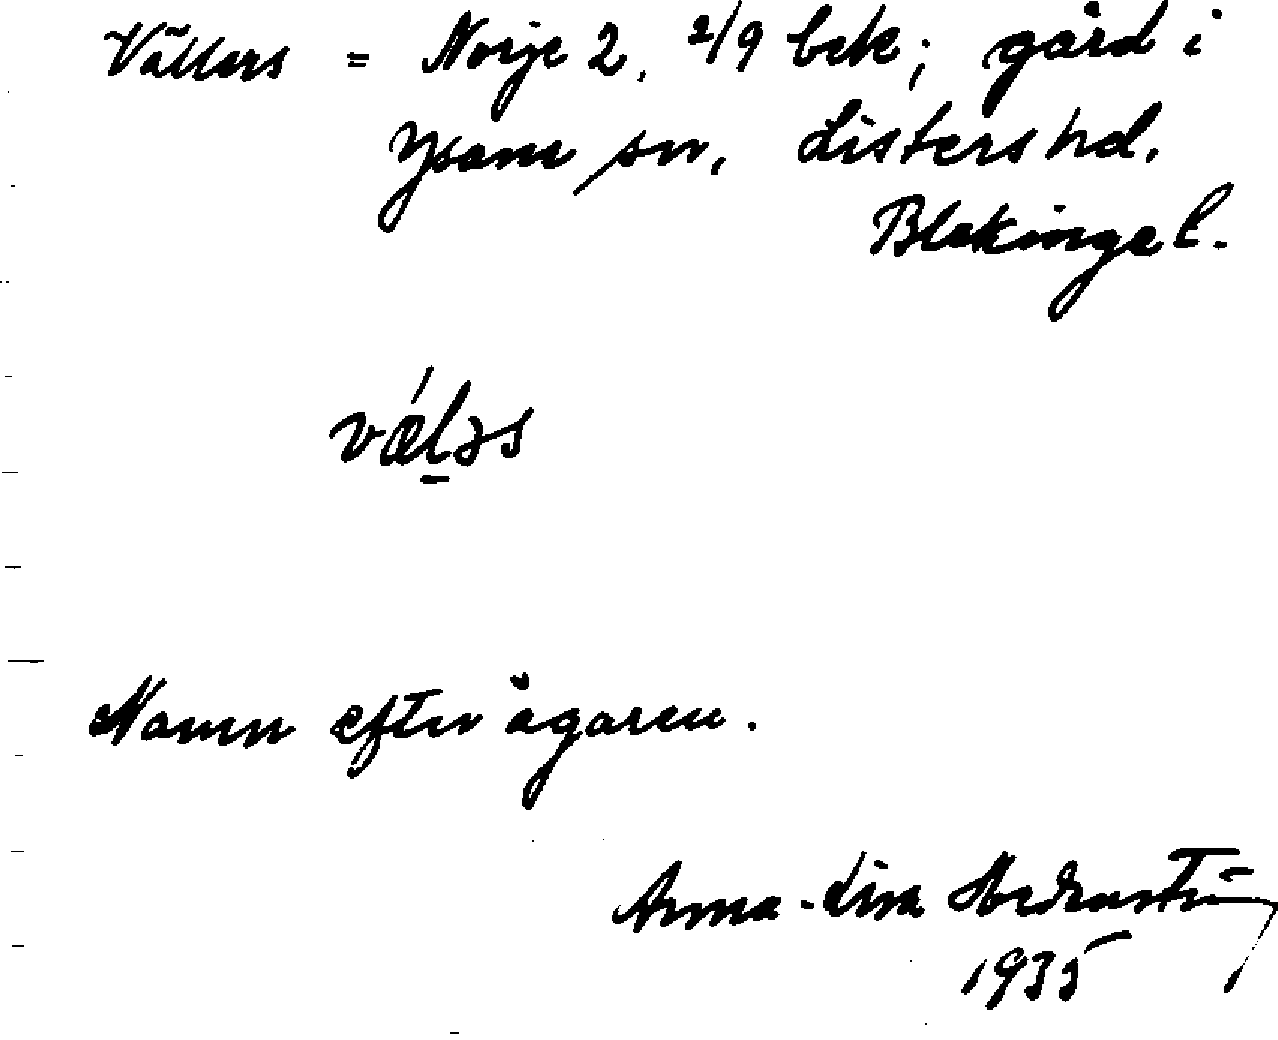 Vällers = Norje 2, 2/9 bek; gård i
Ysane sn, Listers hd.
Blekinge l.
vǽl̲əs
Namn efter ägaren.
Anna-Lisa
1935